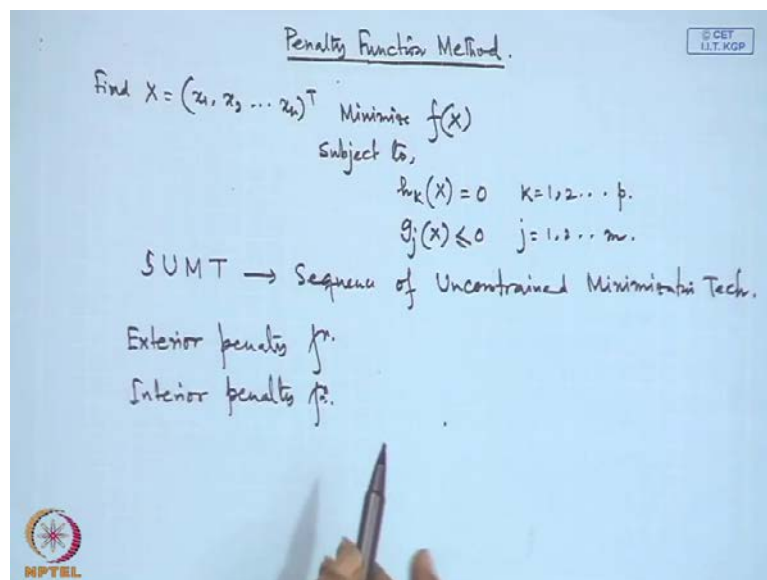 Penalty Function Method.
© CET
I.I.T. KGP
Find X = (x1, x2 ... xn)^T Minimize f(X)
Subject to,
hk(X) = 0 k=1,2... p.
gj(X) ≤ 0 j=1,2.. m.
SUMT → Sequence of Uncontrained Minimization Tech.
Exterior penalty fn.
Interior penalty fn.
NPTEL